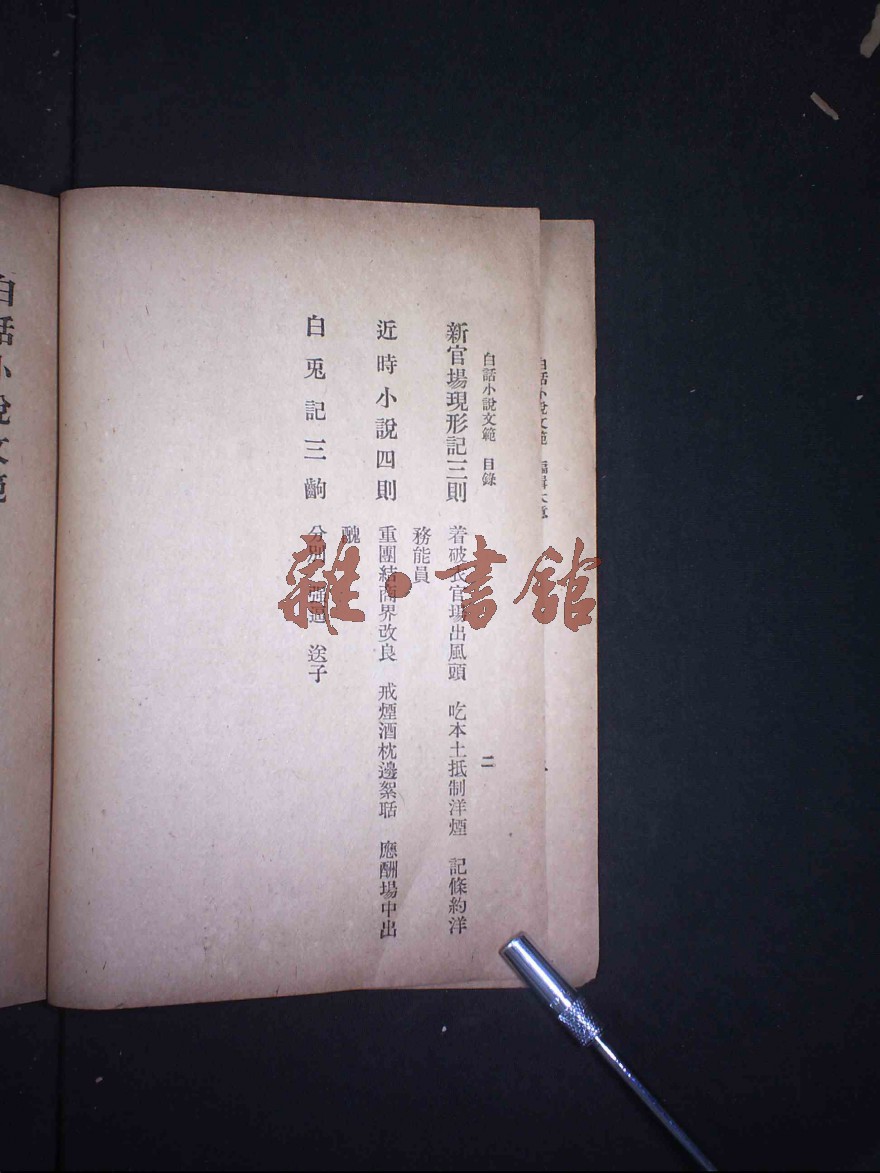 白話小說文範　編輯大意
白話小說文範　目錄　二
新官場現形記三則　着破衣官場出風頭　吃本土抵制洋煙　記條約洋
務能員
近時小說四則　重團結商界改良　戒煙酒枕邊絮聒　應酬場中出
醜
白兎記三齣　分別　送子
白話小說文範
雜·書館